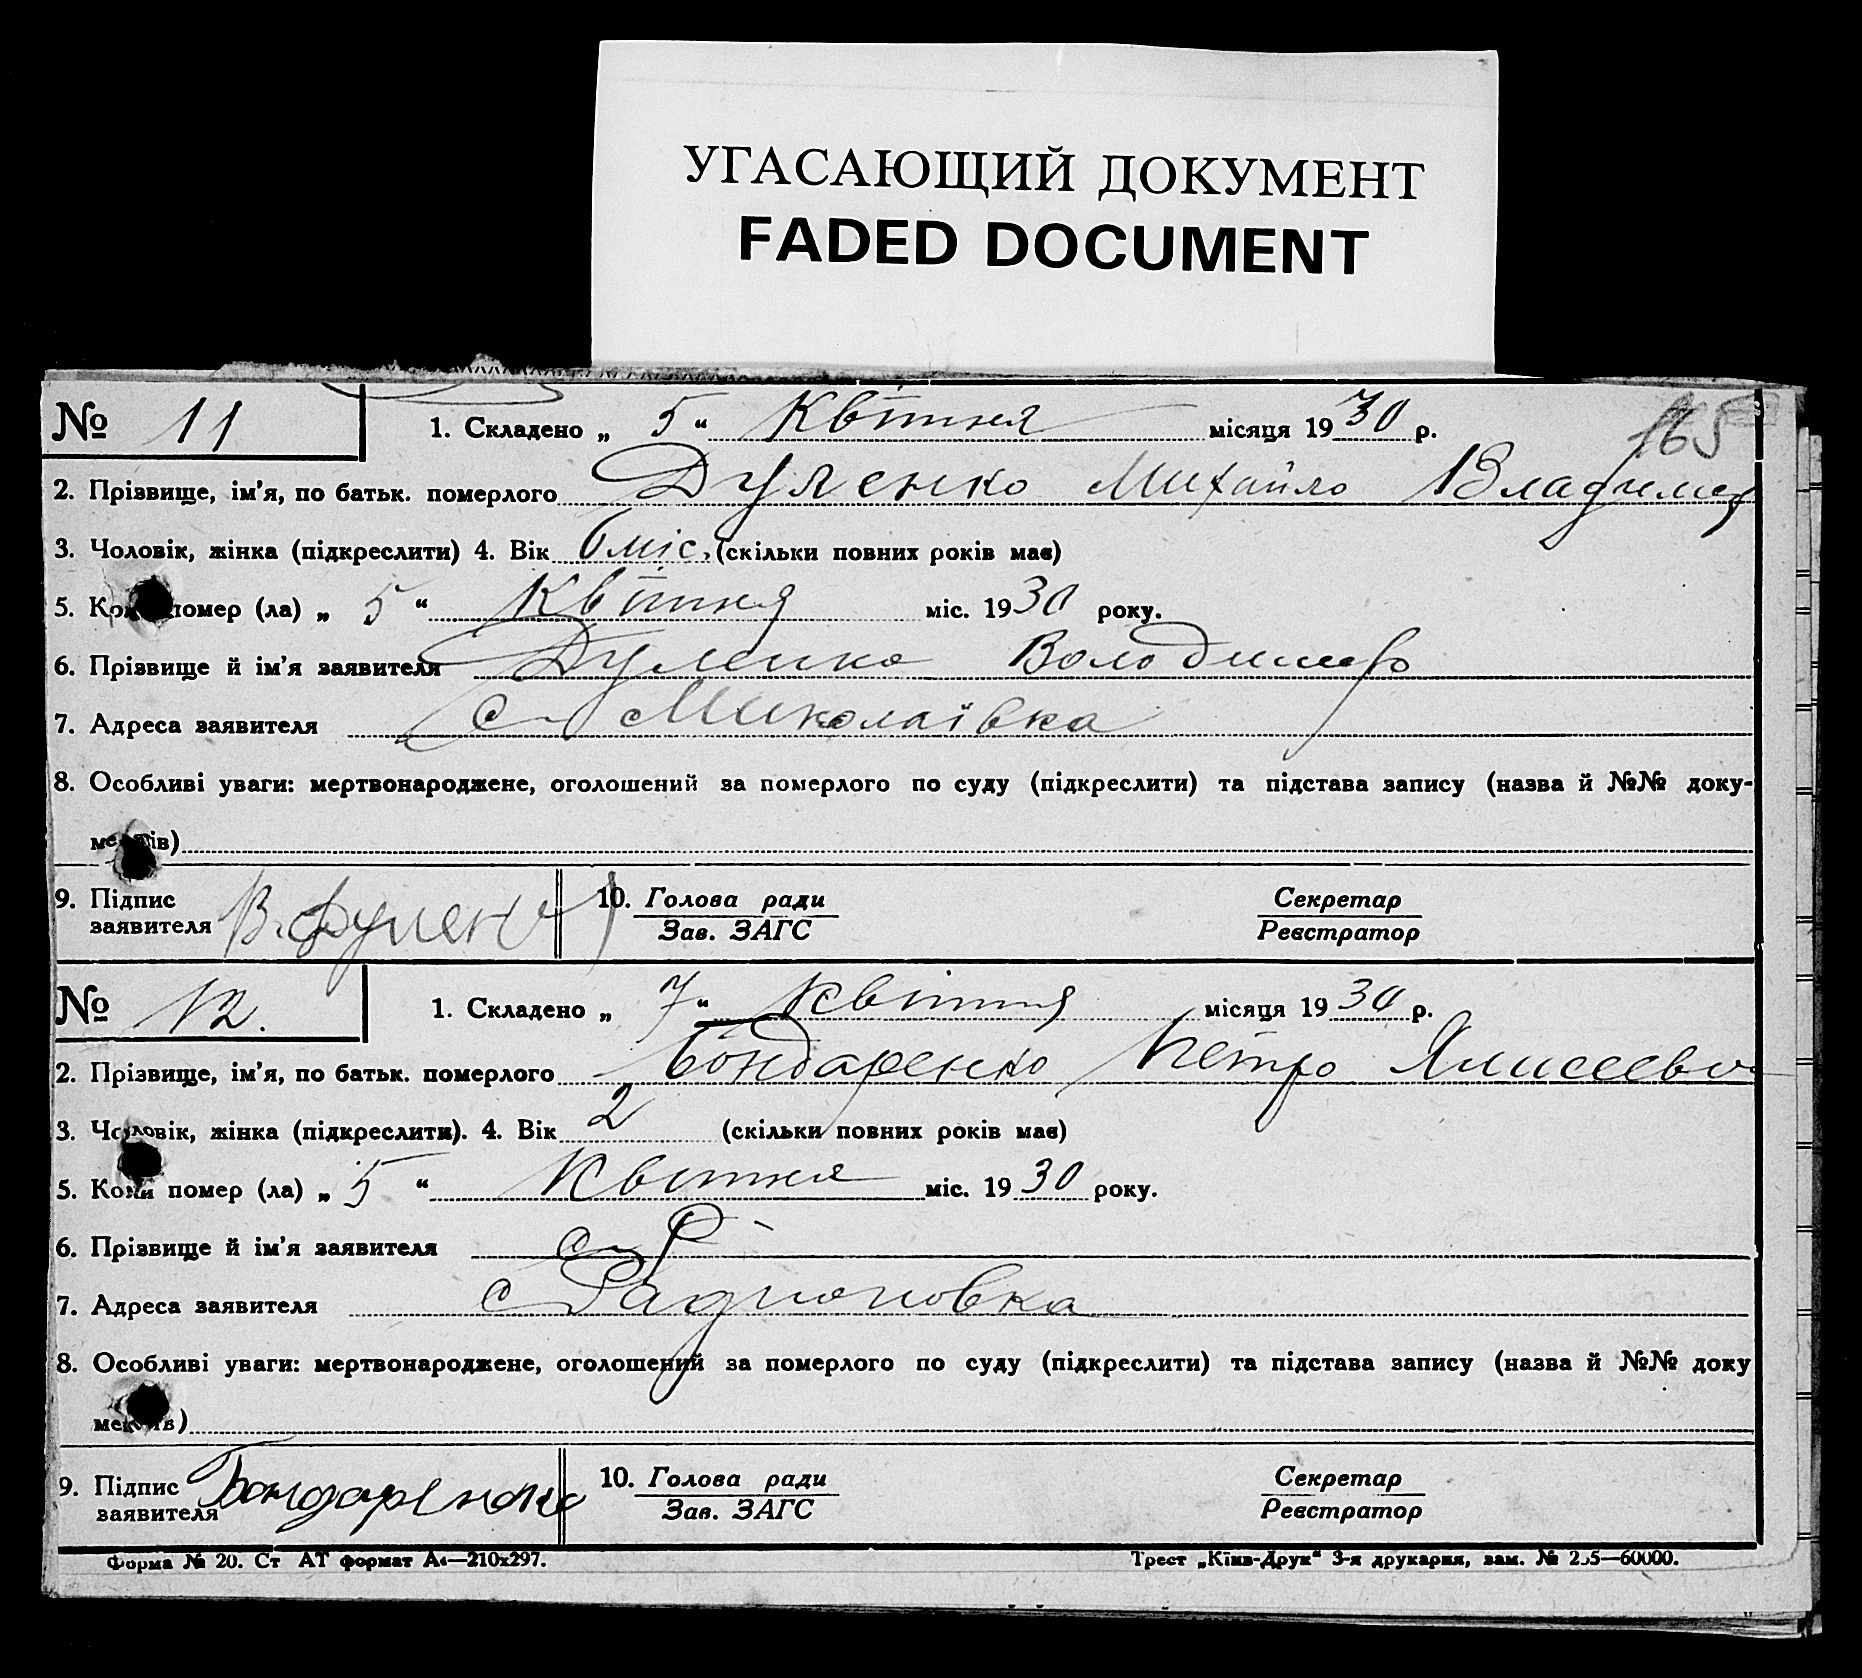 УГАСАЮЩИЙ ДОКУМЕНТ
FADED DOCUMENT
165
№ 11 1. Складено „ 5 “ Квітня місяця 1930 р.
2. Прізвище, ім'я, по батьк. померлого Дуленко Михайло Владимер
3. Чоловік, жінка (підкреслити) 4. Вік 6 міс. (скільки повних років має)
5. Коли помер (ла) „ 5 “ Квітня міс. 1930 року.
6. Прізвище й ім'я заявителя Дуленко Володимер
7. Адреса заявителя с Миколаївка
8. Особливі уваги: мертвонароджене, оголошений за померлого по суду (підкреслити) та підстава запису (назва й №№ доку-
ментів)
9. Підпис заявителя В. Дуленко 10. Голова ради Секретар
Зав. ЗАГС Реєстратор
№ 12. 1. Складено „ 7 “ Квітня місяця 1930 р.
2. Прізвище, ім'я, по батьк. померлого Бондаренко Петро Ялисеево
3. Чоловік, жінка (підкреслити). 4. Вік 2 (скільки повних років має)
5. Коли помер (ла) „ 5 “ Квітня міс. 1930 року.
6. Прізвище й ім'я заявителя с Р
7. Адреса заявителя с Радионовка
8. Особливі уваги: мертвонароджене, оголошений за померлого по суду (підкреслити) та підстава запису (назва й №№ доку
ментів)
9. Підпис заявителя Бондаренко 10. Голова ради Секретар
Зав. ЗАГС Реєстратор
Форма № 20. Ст АТ формат А4—210х297. Трест „Київ-Друк“ 3-я друкарня, зам. № 255—60000.